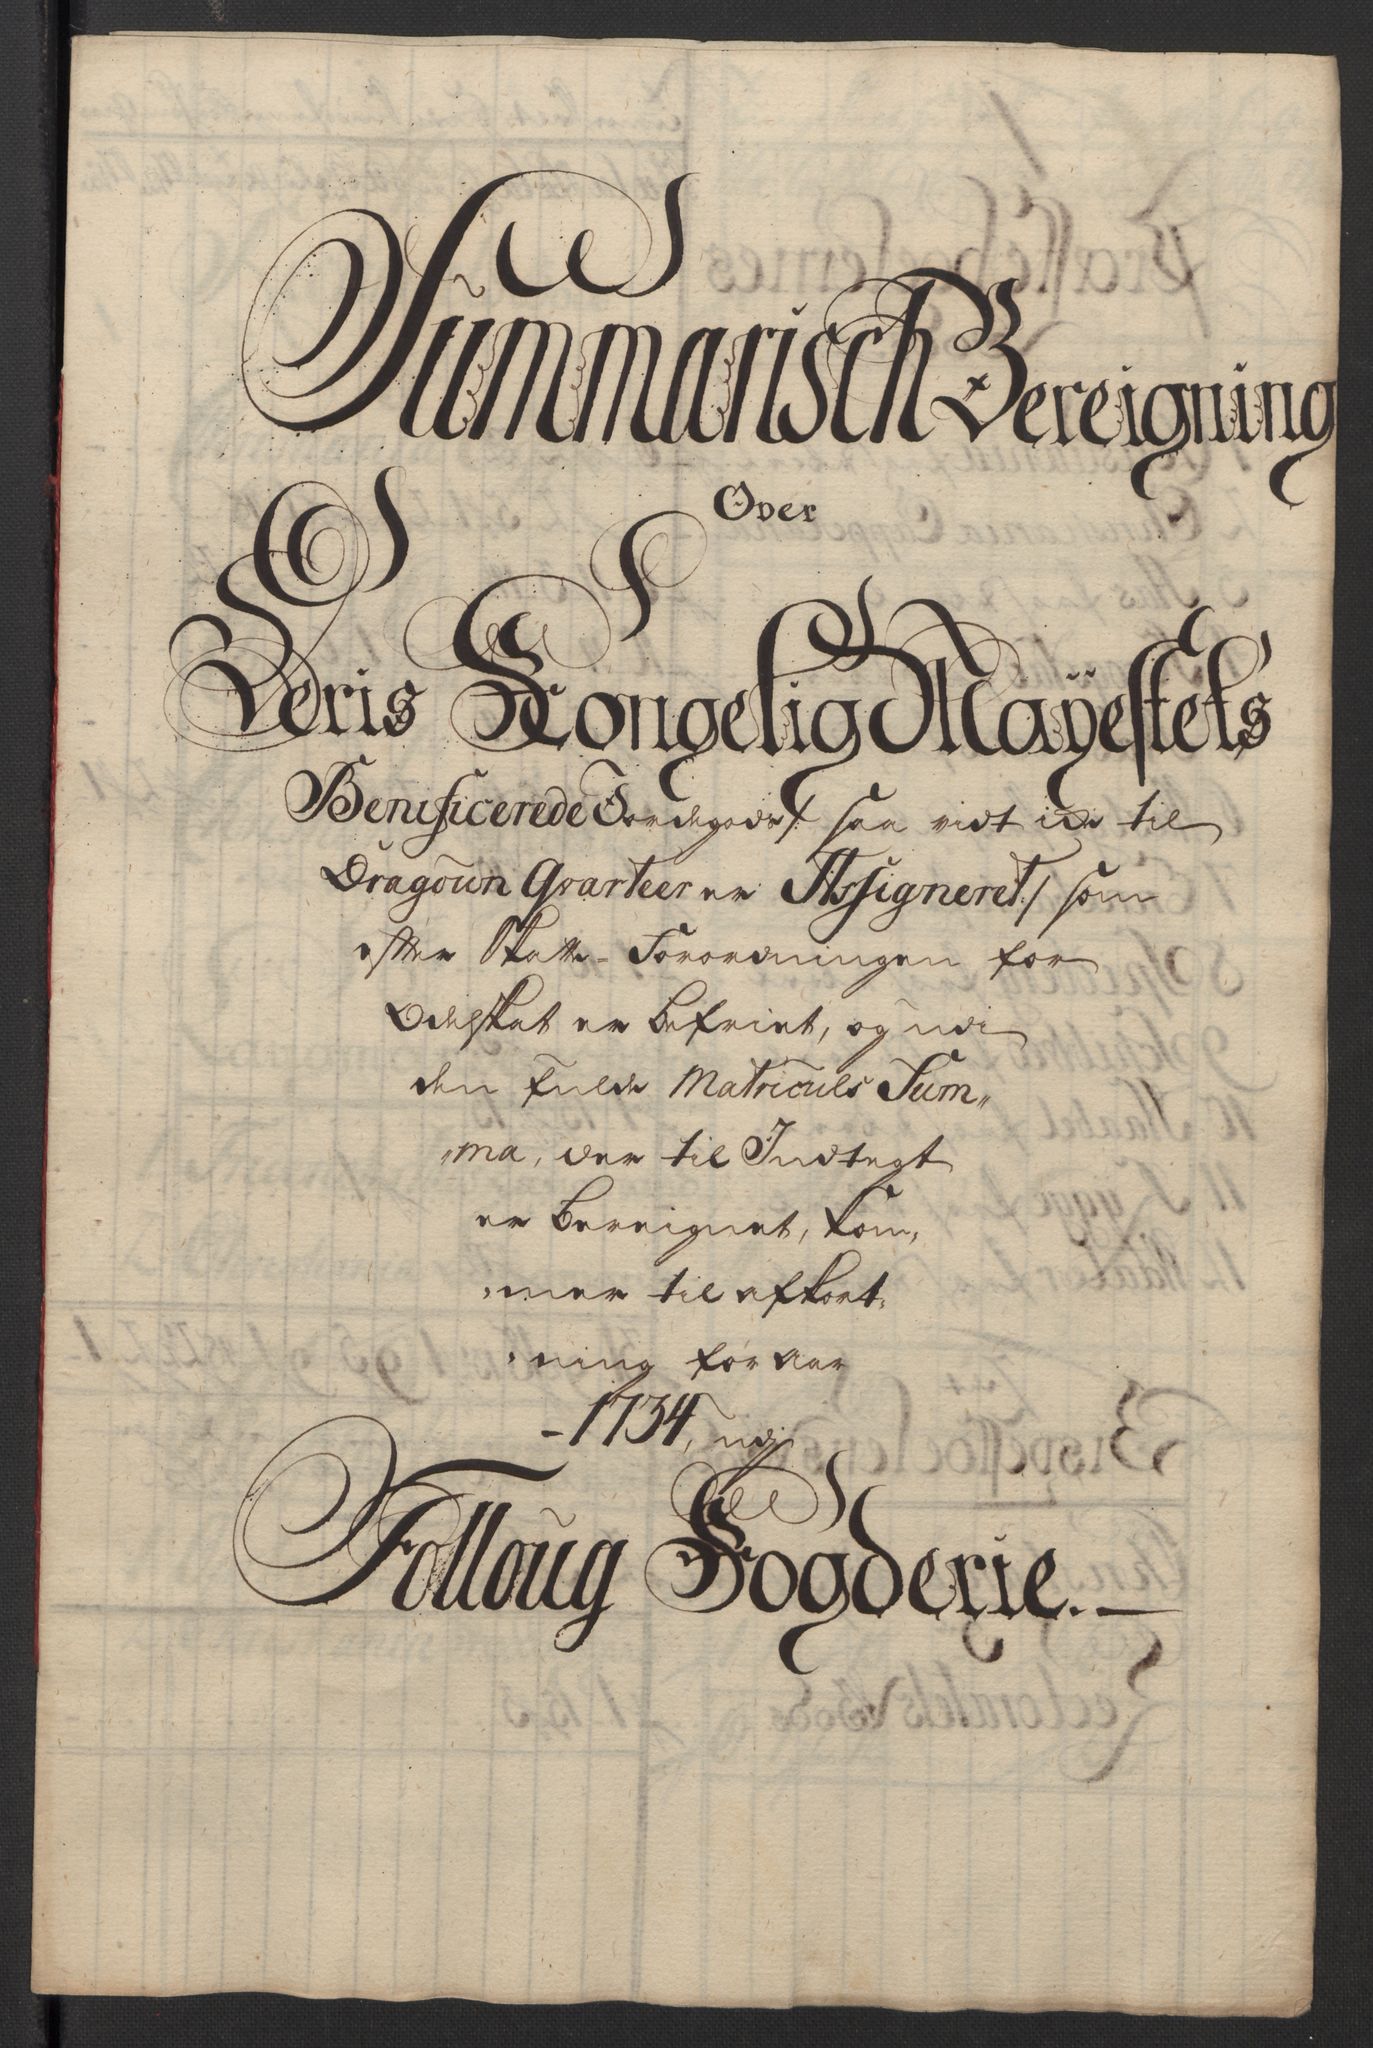 Summarisch Bereigning
Over
Deris Kongelig Mayestets
Benificerede Jordegods /: saa vidt iche til
Dragoun Qvarteer er Assigneret :/ som
efter Skatte-Forordningen for
Odelskat er befriet, og udi
den fulde Matriculs Sum-
ma, der til Indtegt
er bereignet, kom-
mer til afkort-
ning for aar
- 1734, udi
Folloug Fogderie.